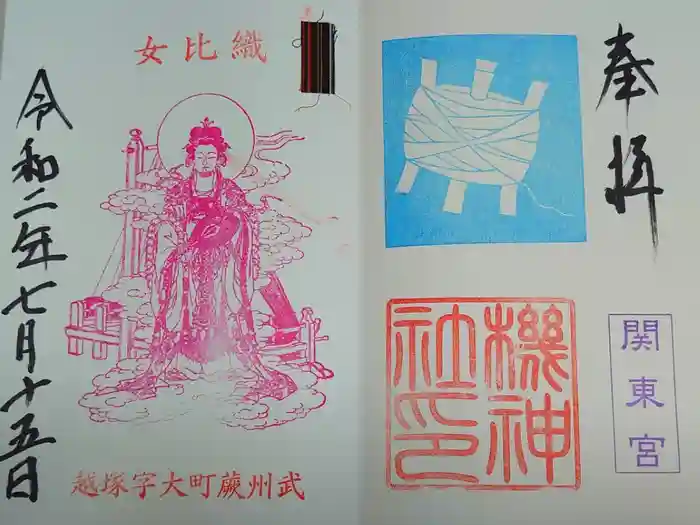 奉拝
関東宮
機神
社印
織比女
武州蕨町大字塚越
令和二年七月十五日